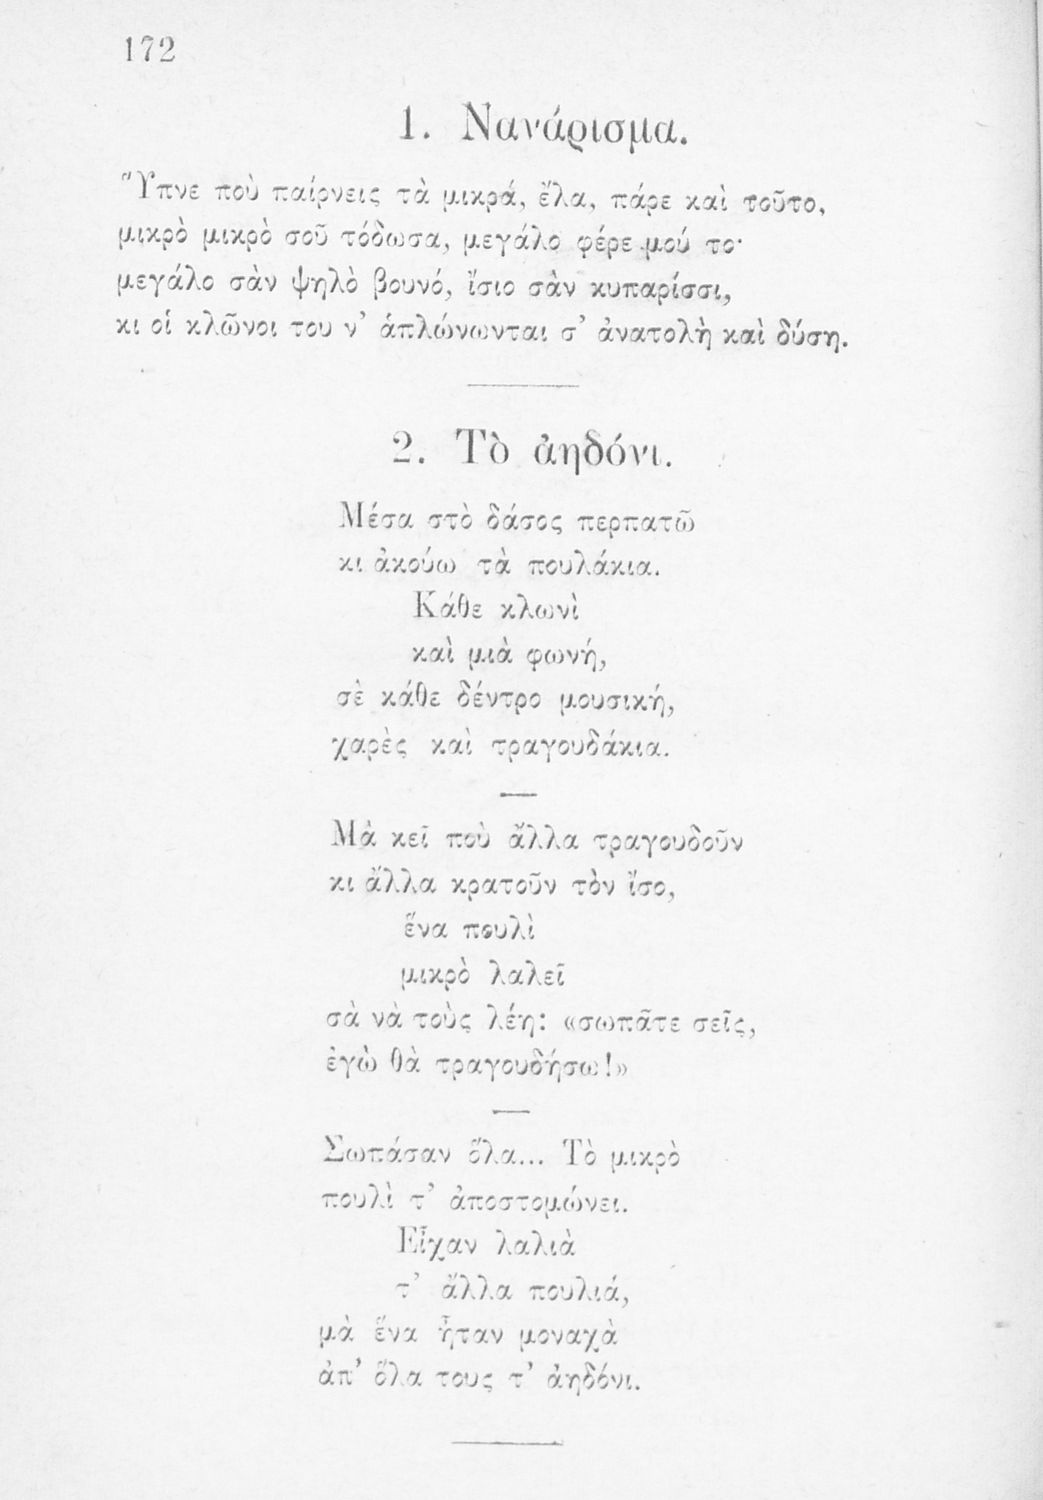 172
1. Νανάρισμα.
Ὕπνε ποὺ παίρνεις τὰ μικρά, ἔλα, πάρε καὶ τοῦτο,
μικρὸ μικρὸ σοῦ τόδωσα, μεγάλο φέρε μού το·
μεγάλο σὰν ψηλὸ βουνό, ἴσιο σὰν κυπαρίσσι,
κι οἱ κλῶνοι του ν’ ἁπλώνωνται σ’ ἀνατολὴ καὶ δύση.
2. Τὸ ἀηδόνι.
Μέσα στὸ δάσος περπατῶ
κι ἀκούω τὰ πουλάκια.
Κάθε κλωνὶ
καὶ μιὰ φωνή,
σὲ κάθε δέντρο μουσική,
χαρὲς καὶ τραγουδάκια.
Μὰ κεῖ ποὺ ἄλλα τραγουδοῦν
κι ἄλλα κρατοῦν τὸν ἴσο,
ἕνα πουλὶ
μικρὸ λαλεῖ
σὰ νὰ τοὺς λέῃ: «σωπᾶτε σεῖς,
ἐγὼ θὰ τραγουδήσω!»
Σωπάσαν ὅλα... Τὸ μικρὸ
πουλὶ τ’ ἀποστομώνει.
Εἶχαν λαλιὰ
τ’ ἄλλα πουλιά,
μὰ ἕνα ἦταν μοναχὰ
ἀπ’ ὅλα τους τ’ ἀηδόνι.